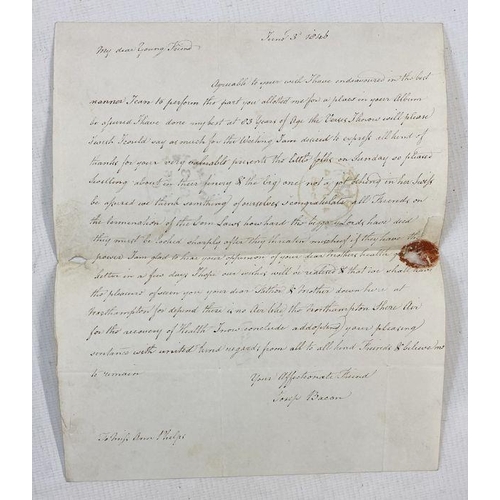 June 3d 1846
My dear Young Friend
Agreeable to your wish I have endeavoured in the best
manner I can to perform the part you allotted me for a place in your Album
be assured I have done my best at 63 Years of Age the Verses I know will please
I wish I could say as much for the Writing I am desired to express all kind of
thanks for your very valuable presents the little folks on Sunday so pleased
in there finery & the Big one not a jot behind in her
be assured we think something of ourselves I congratulate all Friends on
the termination of the Corn Laws how hard the bigger Lords have died
they must be looked sharply after they threaten mischief if they have the
power I am glad to hear your opinion of your dear Mothers health
letter in a few days I hope our wishes will be realized & that we shall have
the pleasure of seeing you your dear Father & brother down here at
Northampton for depend there is no Air like the Northampton Shire Air
for the recovery of Health I now conclude your pleasing
with united kind regards from all to all kind Friends & believe me
to remain
Your Affectionate Friend
Josep Bacon
To Miss Ann Phelps